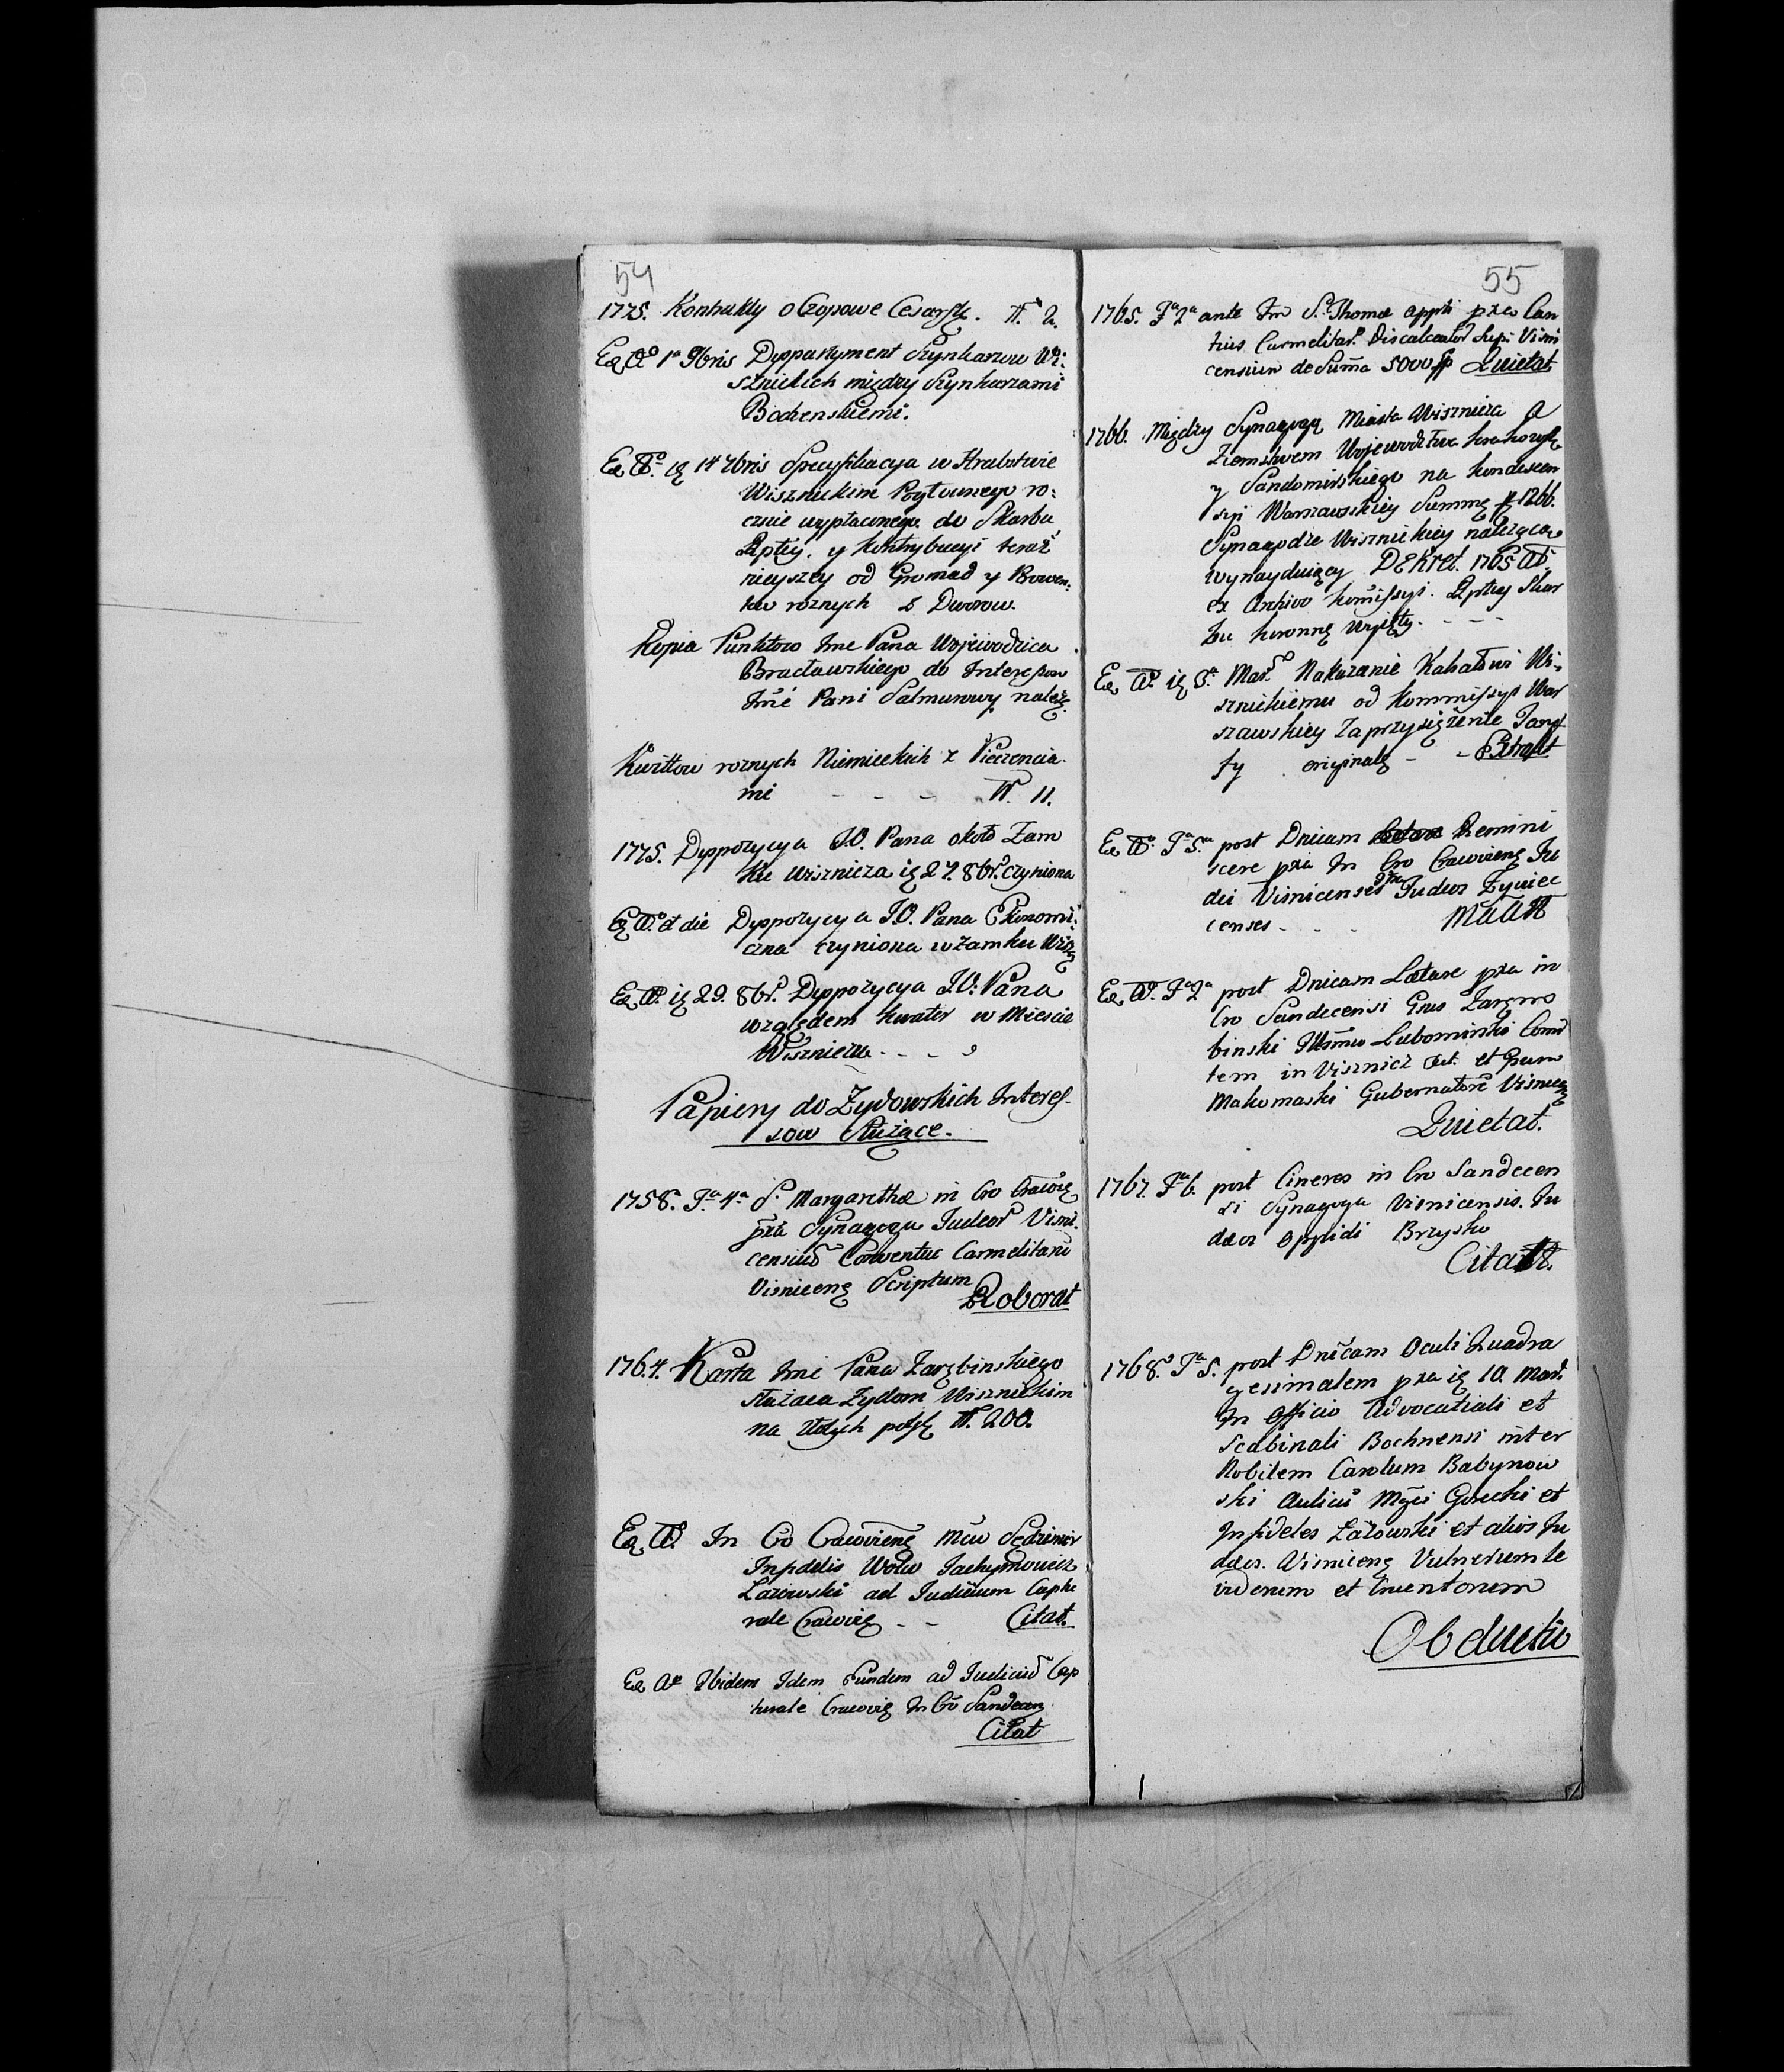 54
1775. Kontrakty o Czopowe Cesarsk. N. 2.
Eo Ao 1a 9bris Deppartyment Szynkarzow Wi:
sznickich między Szynkarzami
Bochenskiemi.
Eo Ao ię 14 Xbris Specyfikacya w Hrabstwie
Wisznickim Pogłownego ro:
cznie wypłaconego do Skarbu
Rptey. y Kontrybucyi teraz
nieyszey od Gromad y
roznych z Dworow.
Kopia Punktow Jme Pana Wojewodzica
Bracławskiego do Interessow
Jmć Pani należ.
Kwittow roznych Niemieckich z Pieczencia
mi - - - N. 11.
1775. Dyspozycya J.O. Pana około Zam
ku Wisznicza ię 27. 8br. czyniona
Eo Ao et die Dyspozycya J.O. Pana Ekonomi:
czna czyniona w Zamku Wiś
Eo Ao ię 29. 8br. Dyspozycya J.O: Pana
względem kwater w Miescie
Wiszniczu - - -
Papiery do Zydowskich Interes-
sow Służące.
1758. Fa 4a S. Margarethæ in Cro Cracovię
pxa Synagoga Judeor Visni
censium Conventui Carmelitaru
Visniceng Scriptum
Roborat
1764. Karta Jmć Pana Zarębinskiego
służaca Zydom Wisznickim
na Złłtych polsk N. 200.
Eo Ao In Cro Cracovieng Mcus Sędzimir
Infidelis Wolw Jachymowicz
Lazowski ad Judicium Captu
rale Cracovię - - Citat.
Eo Ao Ibidem Idem Eundem ad Judiciu Cap
turale Cracovię In Cro Sandecen
Citat
55
1765. Fa 2a ante Fm S. Thomæ Appli pxa Con
tus Carmelitar. Discalceator Visni
censium de Suma 5000 fp Quietat
1766. Między Synagogą Miasta Wisznicza a
Ziemstwem Wojewodztwa krakowsk
y Sandomirskiego na kondescen
syi Warszawskiey Summę f 1266.
Synagodze Wisznickiey należące
wynayduięcy Dekret. 1765 Ao.
ex Archivo Komissyi. Rptey Skar
bu koronnę wyięty. - - -
Eo Ao ię 3a Mar. Nakazanie Kahałowi Wi-
sznickiemu od Kommissyi War
szawskiey Zaprzysiężenie Taryf
fy originalę - - Extrakt
Eo Ao Fa 5a post Dnicam Remini
scere pxa In Cro Cracovieng Ju
dei Visnicenses Judeos Zywiec
censes - - -
Eo Ao Fa 2a post Dnicam Lætare pxa in
Cro Sandecensi Gnus Zarem
binski Illsmu Lubomirski Comi
tem in Visnicz et Gnum
Makomaski Gubernatorē Visnicz
Quietat.
1767. Fa 6. post Cineres in Cro Sandecen
si Synagoga Visnicensis. Ju
dæos Oppidi Brzysko
Citatt.
1768. Fa 5. post Dnicam Oculi Quadra
gesimalem pxa ię 10. Mart.
In Officio Advocatiali et
Scabinali Bochnensi inter
Nobilem Carolum Babynow
ski Aulicu Mgci Gorecki et
Infideles Lazowski et alios Ju
dæos. Visniceng Vulnerum le
et Cruentorum
Obductio